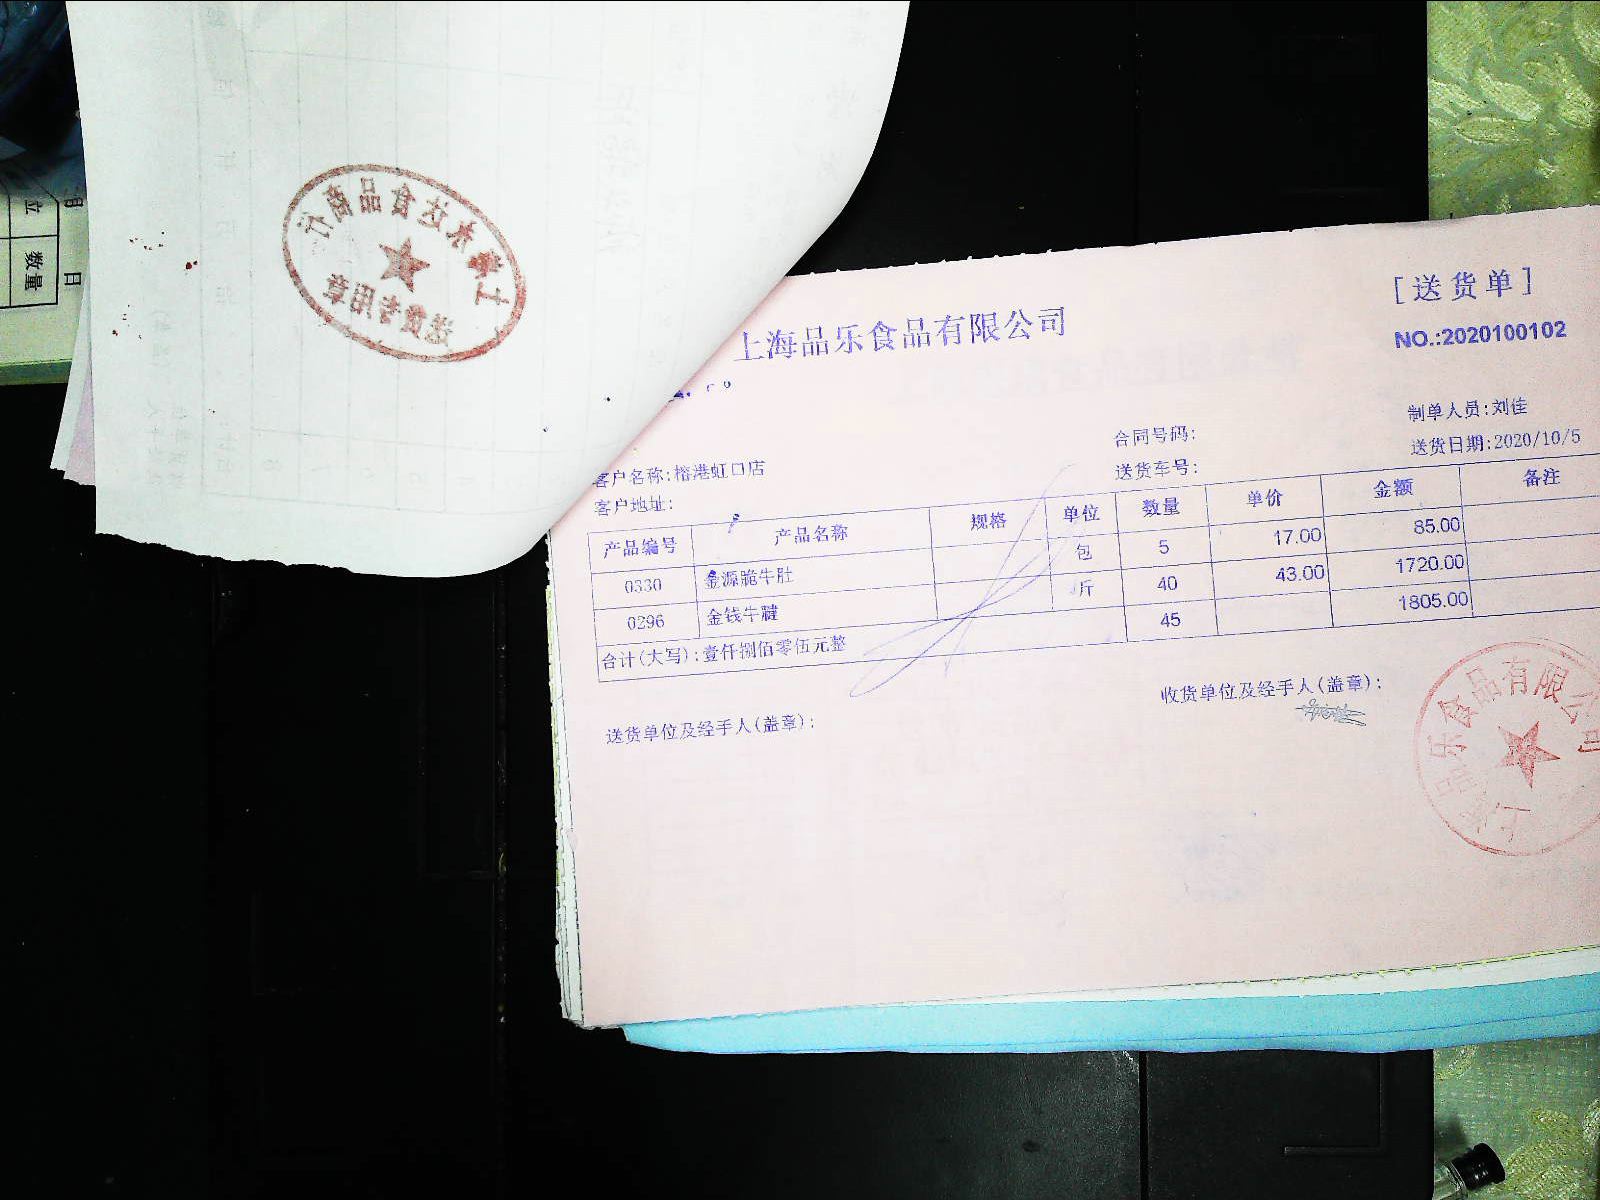 上海品乐食品有限公司
[送货单]
NO.:2020100102
制单人员:刘佳
合同号码:
送货日期:2020/10/5
客户名称:榕港虹口店
送货车号:
客户地址:
产品编号 产品名称 规格 单位 数量 单价 金额 备注
0330 金源脆牛肚 包 5 17.00 85.00
0296 金钱牛腱 斤 40 43.00 1720.00
合计(大写):壹仟捌佰零伍元整 45 1805.00
送货单位及经手人(盖章):
收货单位及经手人(盖章):
上海品乐食品有限公司
食品商行
送货专用章
月 日
位 数量